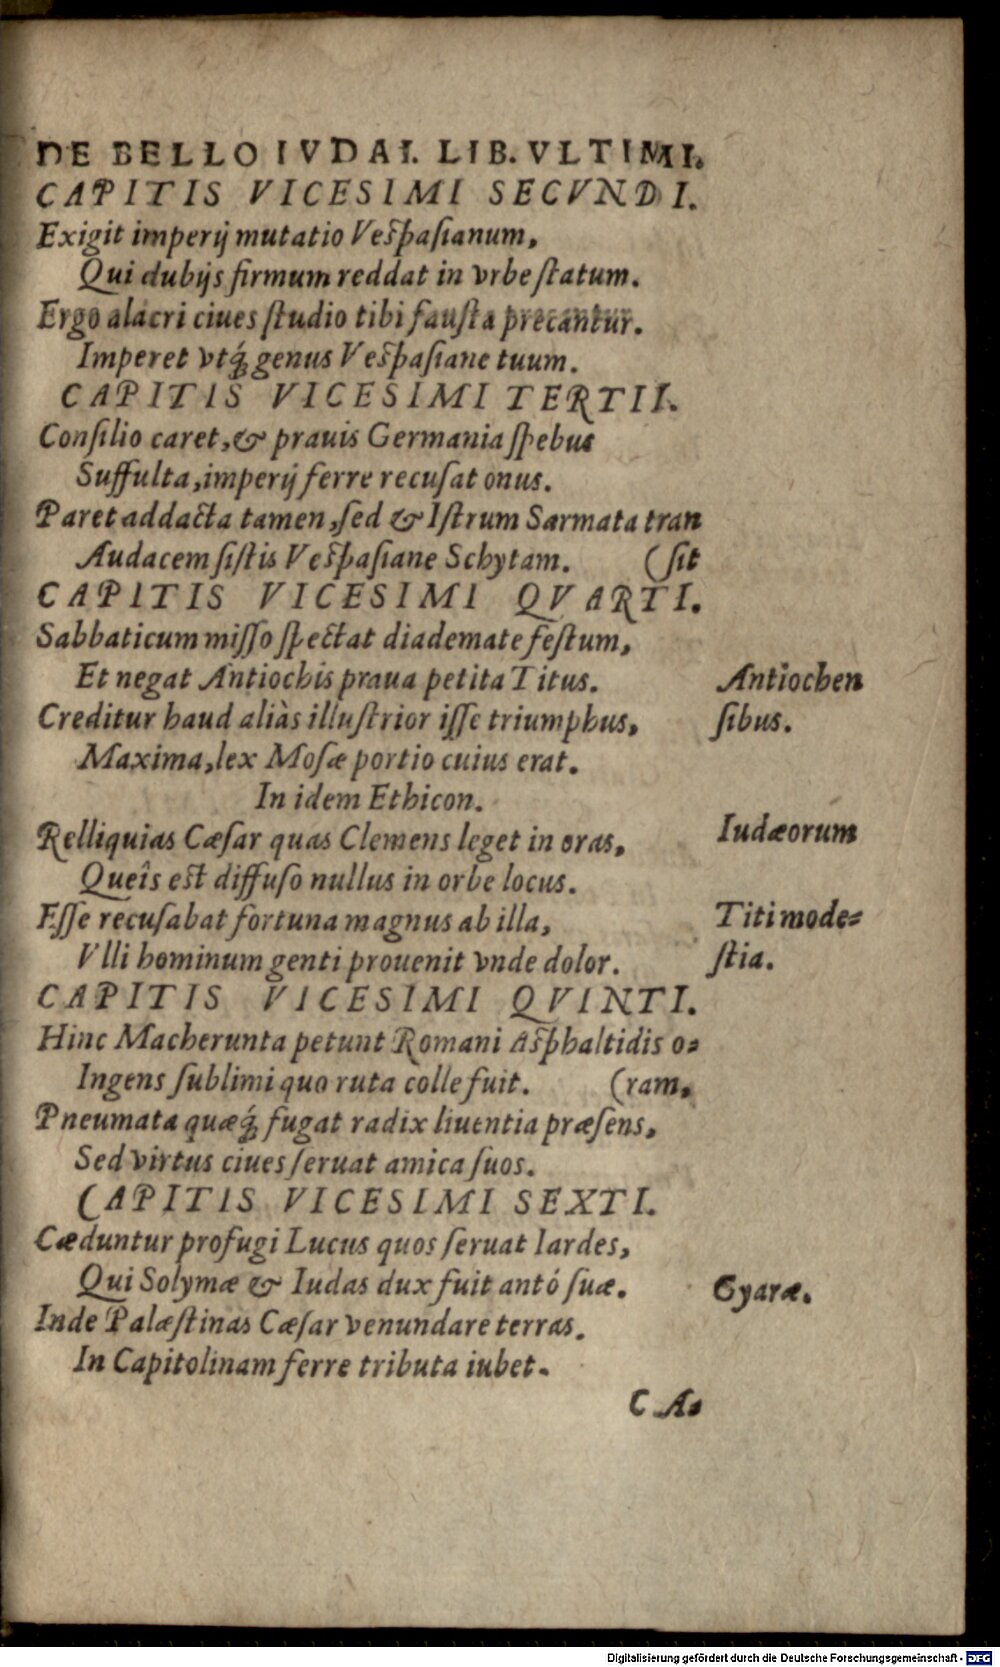 DE BELLO IVDAI. LIB. VLTIMI.
CAPITIS VICESIMI SECVNDI.
Exigit imperij mutatio Veſpaſianum,
Qui dubijs firmum reddat in vrbe ſtatum.
Ergo alacri ciues ſtudio tibi fauſta precantur.
Imperet vtq́; genus Veſpaſiane tuum.
CAPITIS VICESIMI TERTII.
Conſilio caret, & prauis Germania ſpebus
Suffulta, imperij ferre recuſat onus.
Paret addacta tamen, ſed & Iſtrum Sarmata tran
Audacem ſiſtis Veſpaſiane Schytam. (ſit
CAPITIS VICESIMI QVARTI.
Sabbaticum miſſo ſpectat diademate feſtum,
Et negat Antiochis praua petita Titus. Antiochen
Creditur haud aliàs illuſtrior iſſe triumphus, ſibus.
Maxima, lex Moſæ portio cuius erat.
In idem Ethicon.
Relliquias Cæſar quas Clemens leget in oras, Iudæorum
Queîs eſt diffuſo nullus in orbe locus.
Eſſe recuſabat fortuna magnus ab illa, Titi mode=
Vlli hominum genti prouenit vnde dolor. ſtia.
CAPITIS VICESIMI QVINTI.
Hinc Macherunta petunt Romani Aſphaltidis o=
Ingens ſublimi quo ruta colle fuit. (ram,
Pneumata quæq́; fugat radix liuentia præſens,
Sed virtus ciues ſeruat amica ſuos.
CAPITIS VICESIMI SEXTI.
Cæduntur profugi Lucus quos ſeruat Iardes,
Qui Solymæ & Iudas dux fuit antó ſuæ. Gyaræ.
Inde Palæſtinas Cæſar venundare terras.
In Capitolinam ferre tributa iubet.
C A=
Digitalisierung gefördert durch die Deutsche Forschungsgemeinschaft - DFG